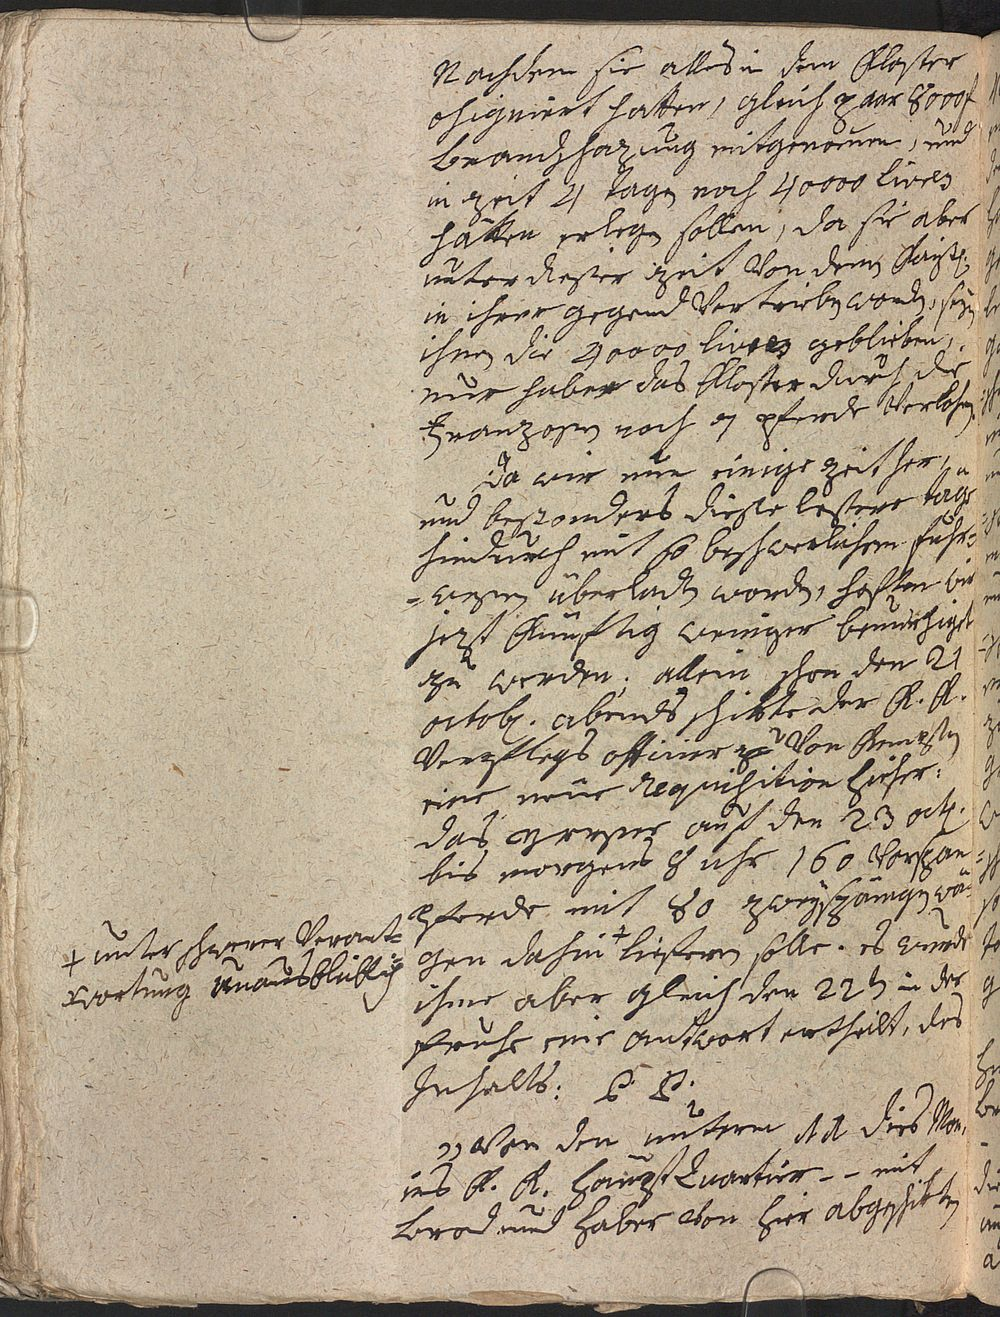 Nachdem sie alles in dem Kloster
obsigniert hatten, gleich paar 8000 f
brandschazung mitgenomen, und
in zeit 4 tagen noch 40000 livres
hätten erlegen sollen, da sie aber
unter dieser zeit von denen Kaiserl.
in ihrer gegend vertrieben worden, seyn
ihnen die 40000 livres geblieben,
nur haben das Kloster durch die
Franzosen noch 7 pferde verlohren
Da wir nun einige zeit her,
und besonders diese lestere täge
hindurch mit so beschwerlichem fuhr=
=wesen überladen worden, hoften wir
jezt künftig weniger beunruhiget
zu werden; allein schon den 21
octob. abends schikte der K. K.
Verpflegs officier zu von Kempten
eine neue requisition hieher:
das auf den 23 oct.
bis morgens 8 uhr 160 vorspan
pferde mit 80 zweyspännigen wä=
gen dahin + liefern solle. es wurde
ihme aber gleich den 22ten in der
fruhe eine antwort ertheilt, des
Inhalts: P. P.
+ unter schwerer Verant=
wortung unausbleiblich
„Von den unterm 11 dies Mon.
ins K. K. Haupt Quartier -- mit
brod und haber von hier abgeschikten